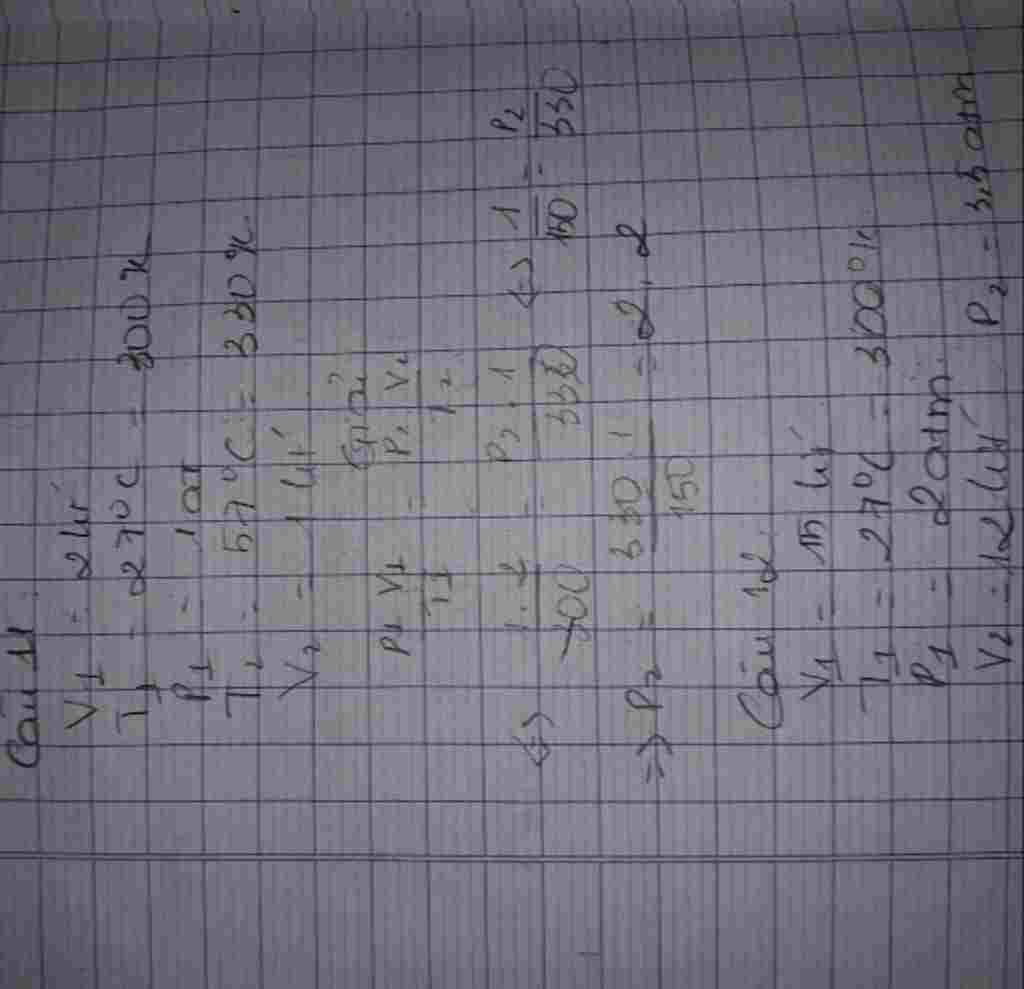 Câu 11
V1 = 2 lít
T1 = 27°C = 300°K
P1 = 1 at
T2 = 57°C = 330°K
V2 = 1 lít
Giải
P1 V1 / T1 = P2 V2 / T2
<=> 1.2 / 300 = P2.1 / 330 <=> 1 / 150 = P2 / 330
=> P2 = 330.1 / 150 = 2,2
Câu 12
V1 = 15 lít
T1 = 27°C = 300°K
P1 = 2atm
V2 = 12 lít P2 = 3,5 atm